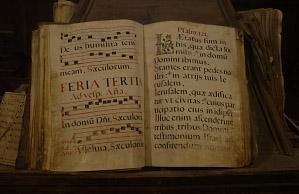 De us humilita tem
meam. Sæculorum.
FERIA TERTI
Ad vesp. Aña.
In domū Dñi. Sæculoru
Alleluia, Sæculoru
Psalm.121.
Lætatus sum in
his, quæ dicta sunt
in domū
Domini ibimus.
Stantes erant pedes no
stri: in atrijs tuis Ie
rusalem.
Ierusalem, quæ ædifica
tur vt civitas: cuius par
ticipatio eius in idipsū
Illuc enim ascenderunt
tribus, tribus Domini
ad
confitendum nomini